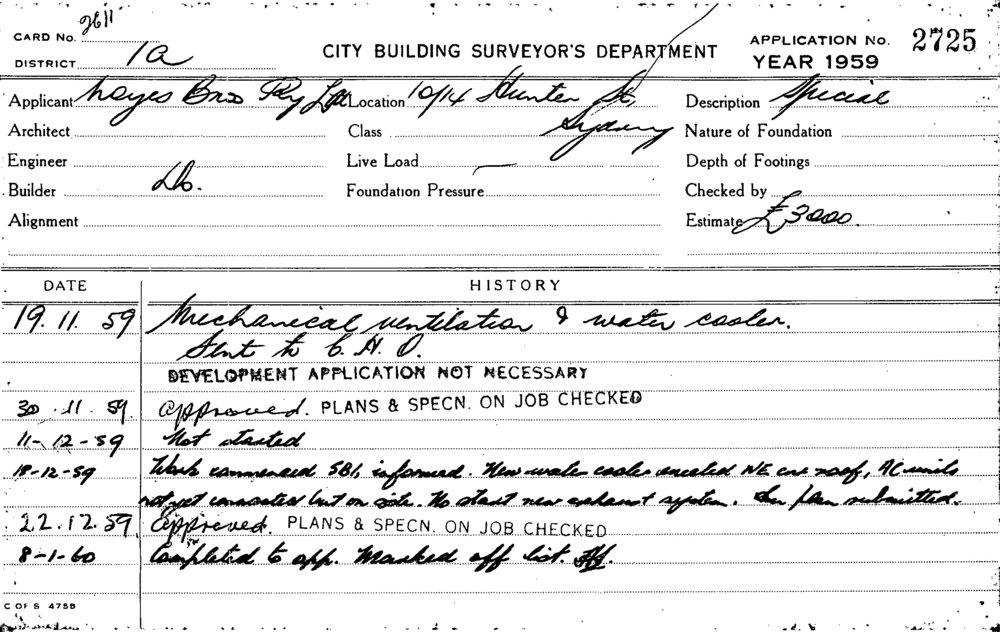 2611
CARD No.
DISTRICT 1a
CITY BUILDING SURVEYOR'S DEPARTMENT
APPLICATION No. 2725
YEAR 1959
Applicant Hayes Bros Pty Ltd Location 10/14 Hunter St, Description Special
Architect Class Sydney Nature of Foundation
Engineer Live Load Depth of Footings
Builder Do. Foundation Pressure Checked by
Alignment Estimate £3000.
DATE HISTORY
19.11.59 Mechanical ventilation & water cooler.
Sent to C.H.O.
DEVELOPMENT APPLICATION NOT NECESSARY
30.11.59. Approved. PLANS & SPECN. ON JOB CHECKED
11-12-59 Not started
18-12-59 Work commenced SBI, informed. New water cooler erected NE cnr roof, AC units
not yet connected but on site. No start new exhaust system. plan submitted.
22.12.59 Approved. PLANS & SPECN. ON JOB CHECKED
8-1-60 Completed to app. Marked off list.
C OF S 475B